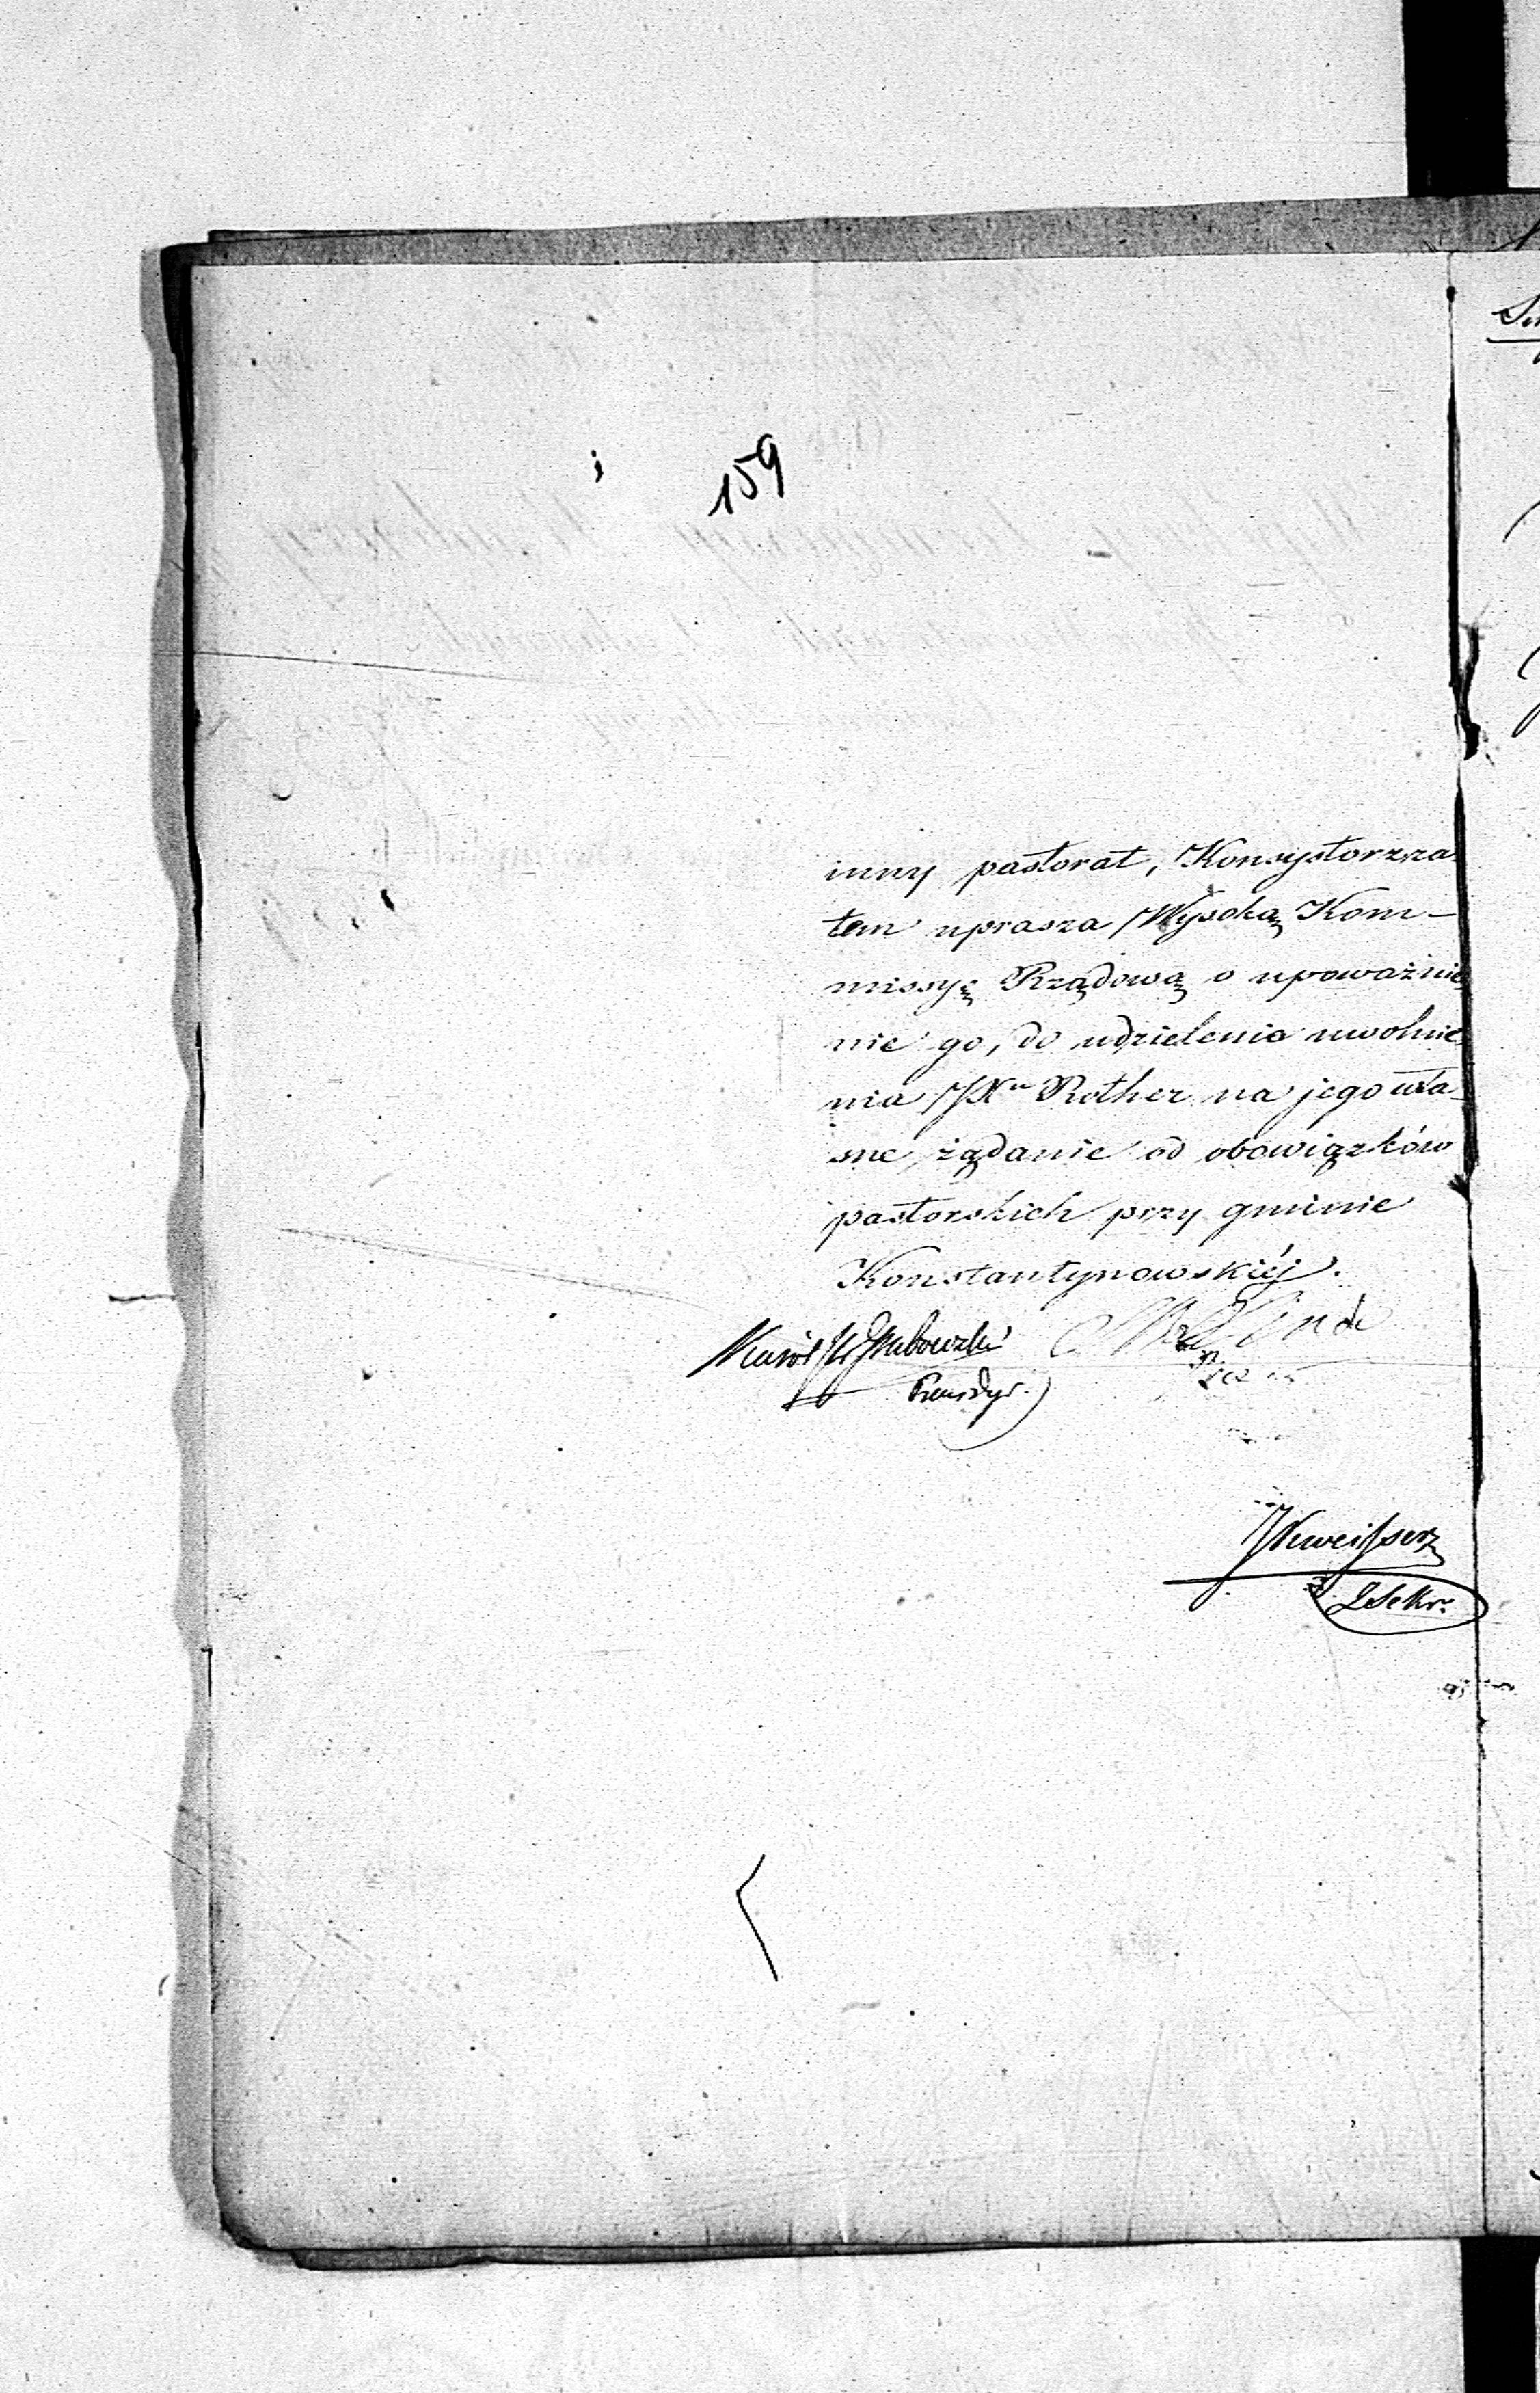 159
inny pastorat, Konsystorz za-
tem uprasza Wysoką Kom-
missyę Rządową o upoważnie-
nie go, do udzielenia uwolnie-
nia JXu Rother na jego wła-
sne żądanie od obowiązków
pastorskich przy gminie
Konstantynowskiéj.
Linde
Prezes